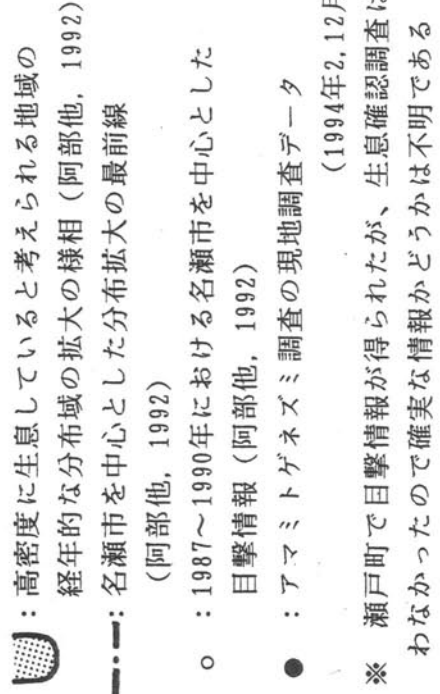 ：高密度に生息していると考えられる地域の
経年的な分布域の拡大の様相（阿部他，1992）
：名瀬市を中心とした分布拡大の最前線
（阿部他，1992）
○：1987～1990年における名瀬市を中心とした
目撃情報（阿部他，1992）
●：アマミトゲネズミ調査の現地調査データ
（1994年2,12月
※ 瀬戸町で目撃情報が得られたが、生息確認調査は
わなかったので確実な情報かどうかは不明である